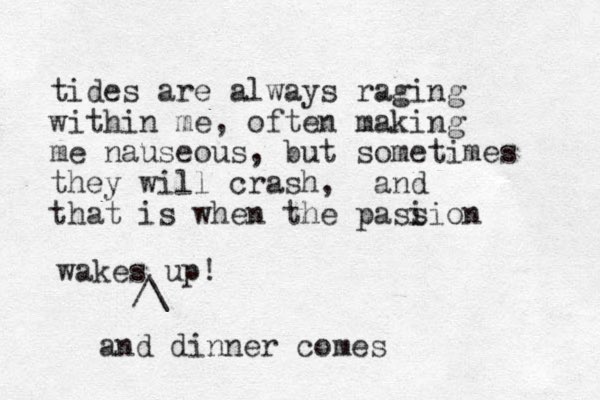 tides are always raging
within me, often making
me nauseous, but sometimes
they will crash,  and
that is when the passion
wakes up!
/\
and dinner comes